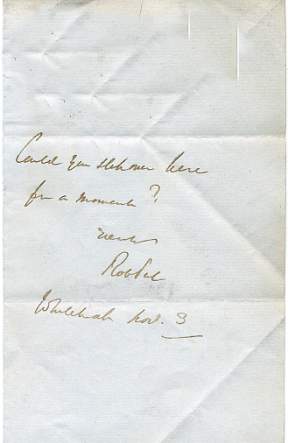 Could you step over here
for a moment?
ever
Rob Peel
Whitehall Nov. 3